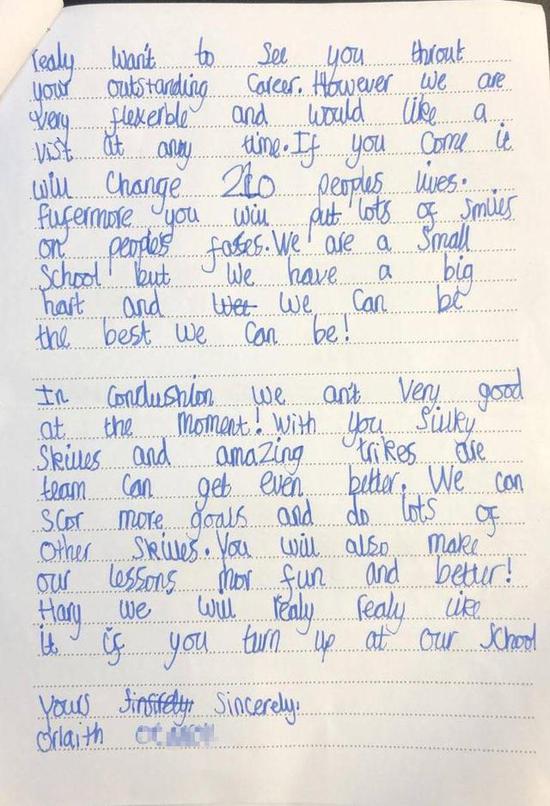 realy want to see you throut
your outstanding career. However we are
very flexerble and would like a
vist at any time. If you come it
will change 210 peoples lives.
Fufermore you will put lots of smiles
on people's fases. We are a small
school but we have a big
hart and we can be
the best we can be!
In conclushion we ar't very good
at the moment! With you silky
skilles and amazing trikes are
team can get even better. We can
scor more goals and do lots of
other skilles. You will also make
our lessons mor fun and better!
Hary we will realy realy like
it if you turn up at our school
Yours Sincerely.
Orlaith